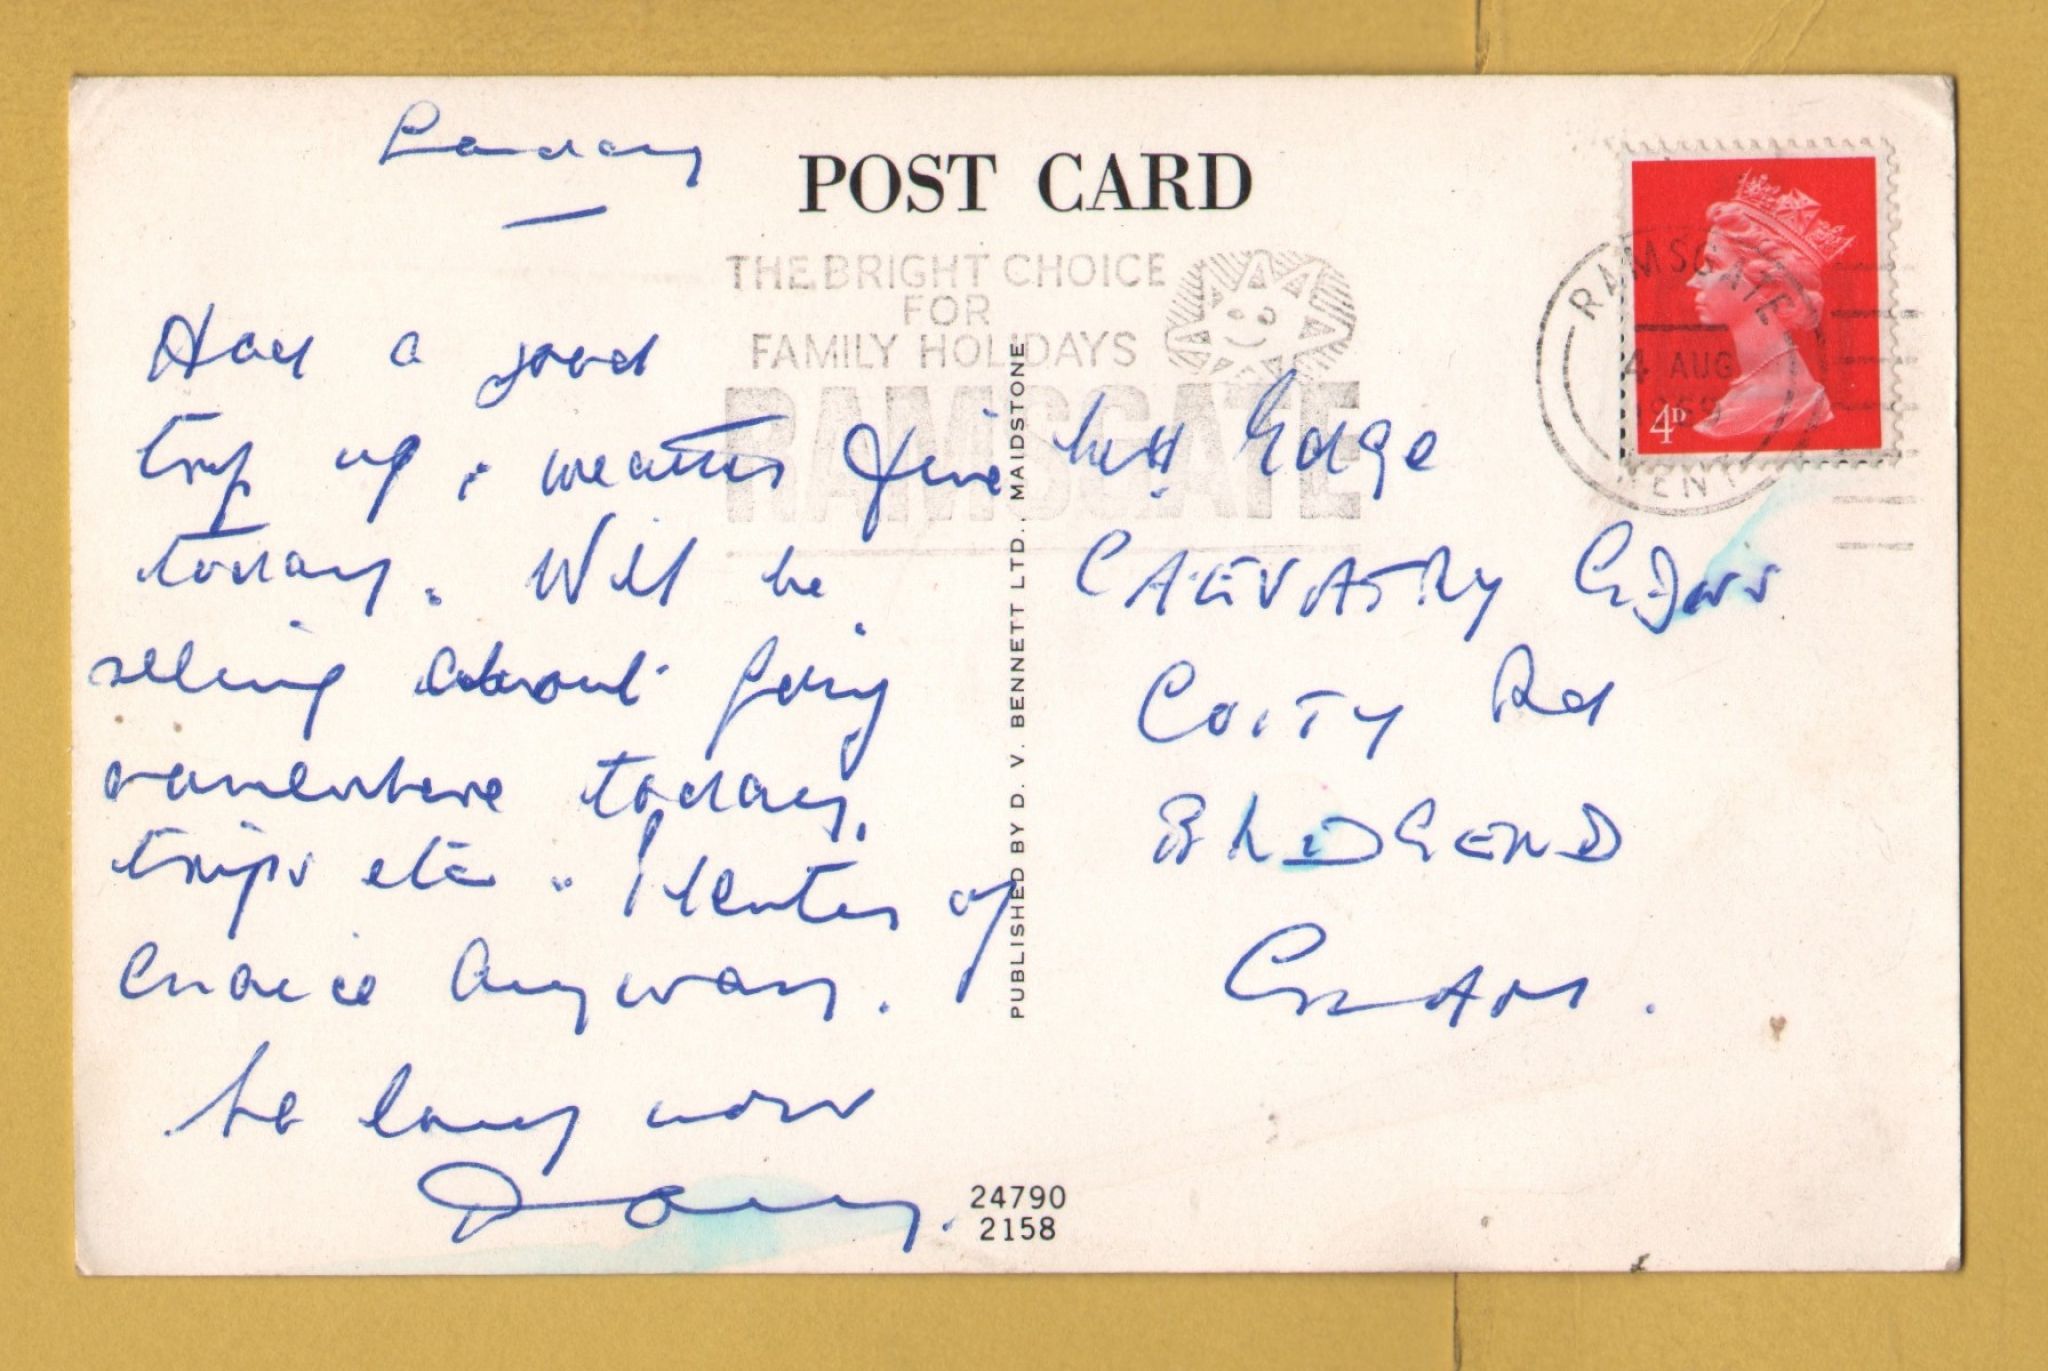 Sunday
POST CARD
THE BRIGHT CHOICE
FOR
FAMILY HOLIDAYS
RAMSGATE
RAMSGATE
4 AUG
1969
KENT
4D
Had a good
trip up, weather fine
today. Will be
seeing about going
somewhere today,
trips etc. Plenty of
choice anyway.
So long now
PUBLISHED BY D. V. BENNETT LTD. MAIDSTONE
Edge
Coity Rd
BRIDGEND
GLAM.
24790
2158